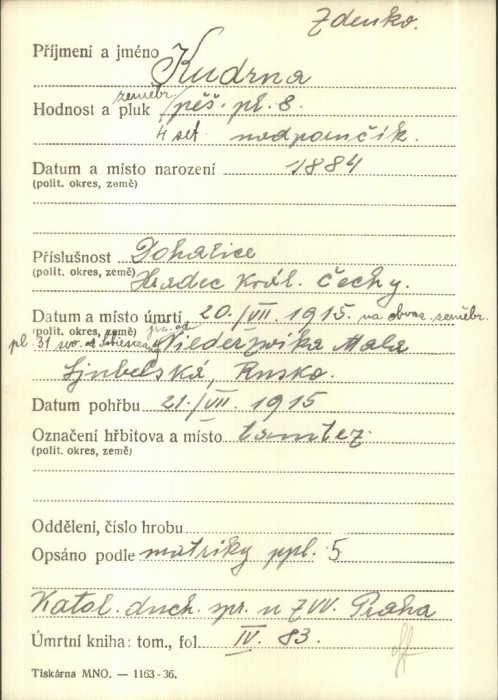 Zdenko.
Příjmení a jméno Kudrna
zeměbr.
Hodnost a pluk pěš. pl. 8.
4 set. nadporučík.
Datum a místo narození 1884
(polit. okres, země)
Příslušnost Dohalice
(polit. okres, země) Hradec Král. Čechy.
Datum a místo úmrtí 20./VII. 1915. na obvaz. zeměbr.
(polit. okres, země)
pl. 31 Niederžvika Mala
Ljubelská, Rusko.
Datum pohřbu 21./VII. 1915
Označení hřbitova a místo tamtéž.
(polit. okres, země)
Oddělení, číslo hrobu
Opsáno podle matriky ppl. 5
Katol. duch. spr. u ZVV. Praha
Úmrtní kniha: tom., fol. IV. 83.
Tiskárna MNO. — 1163-36.